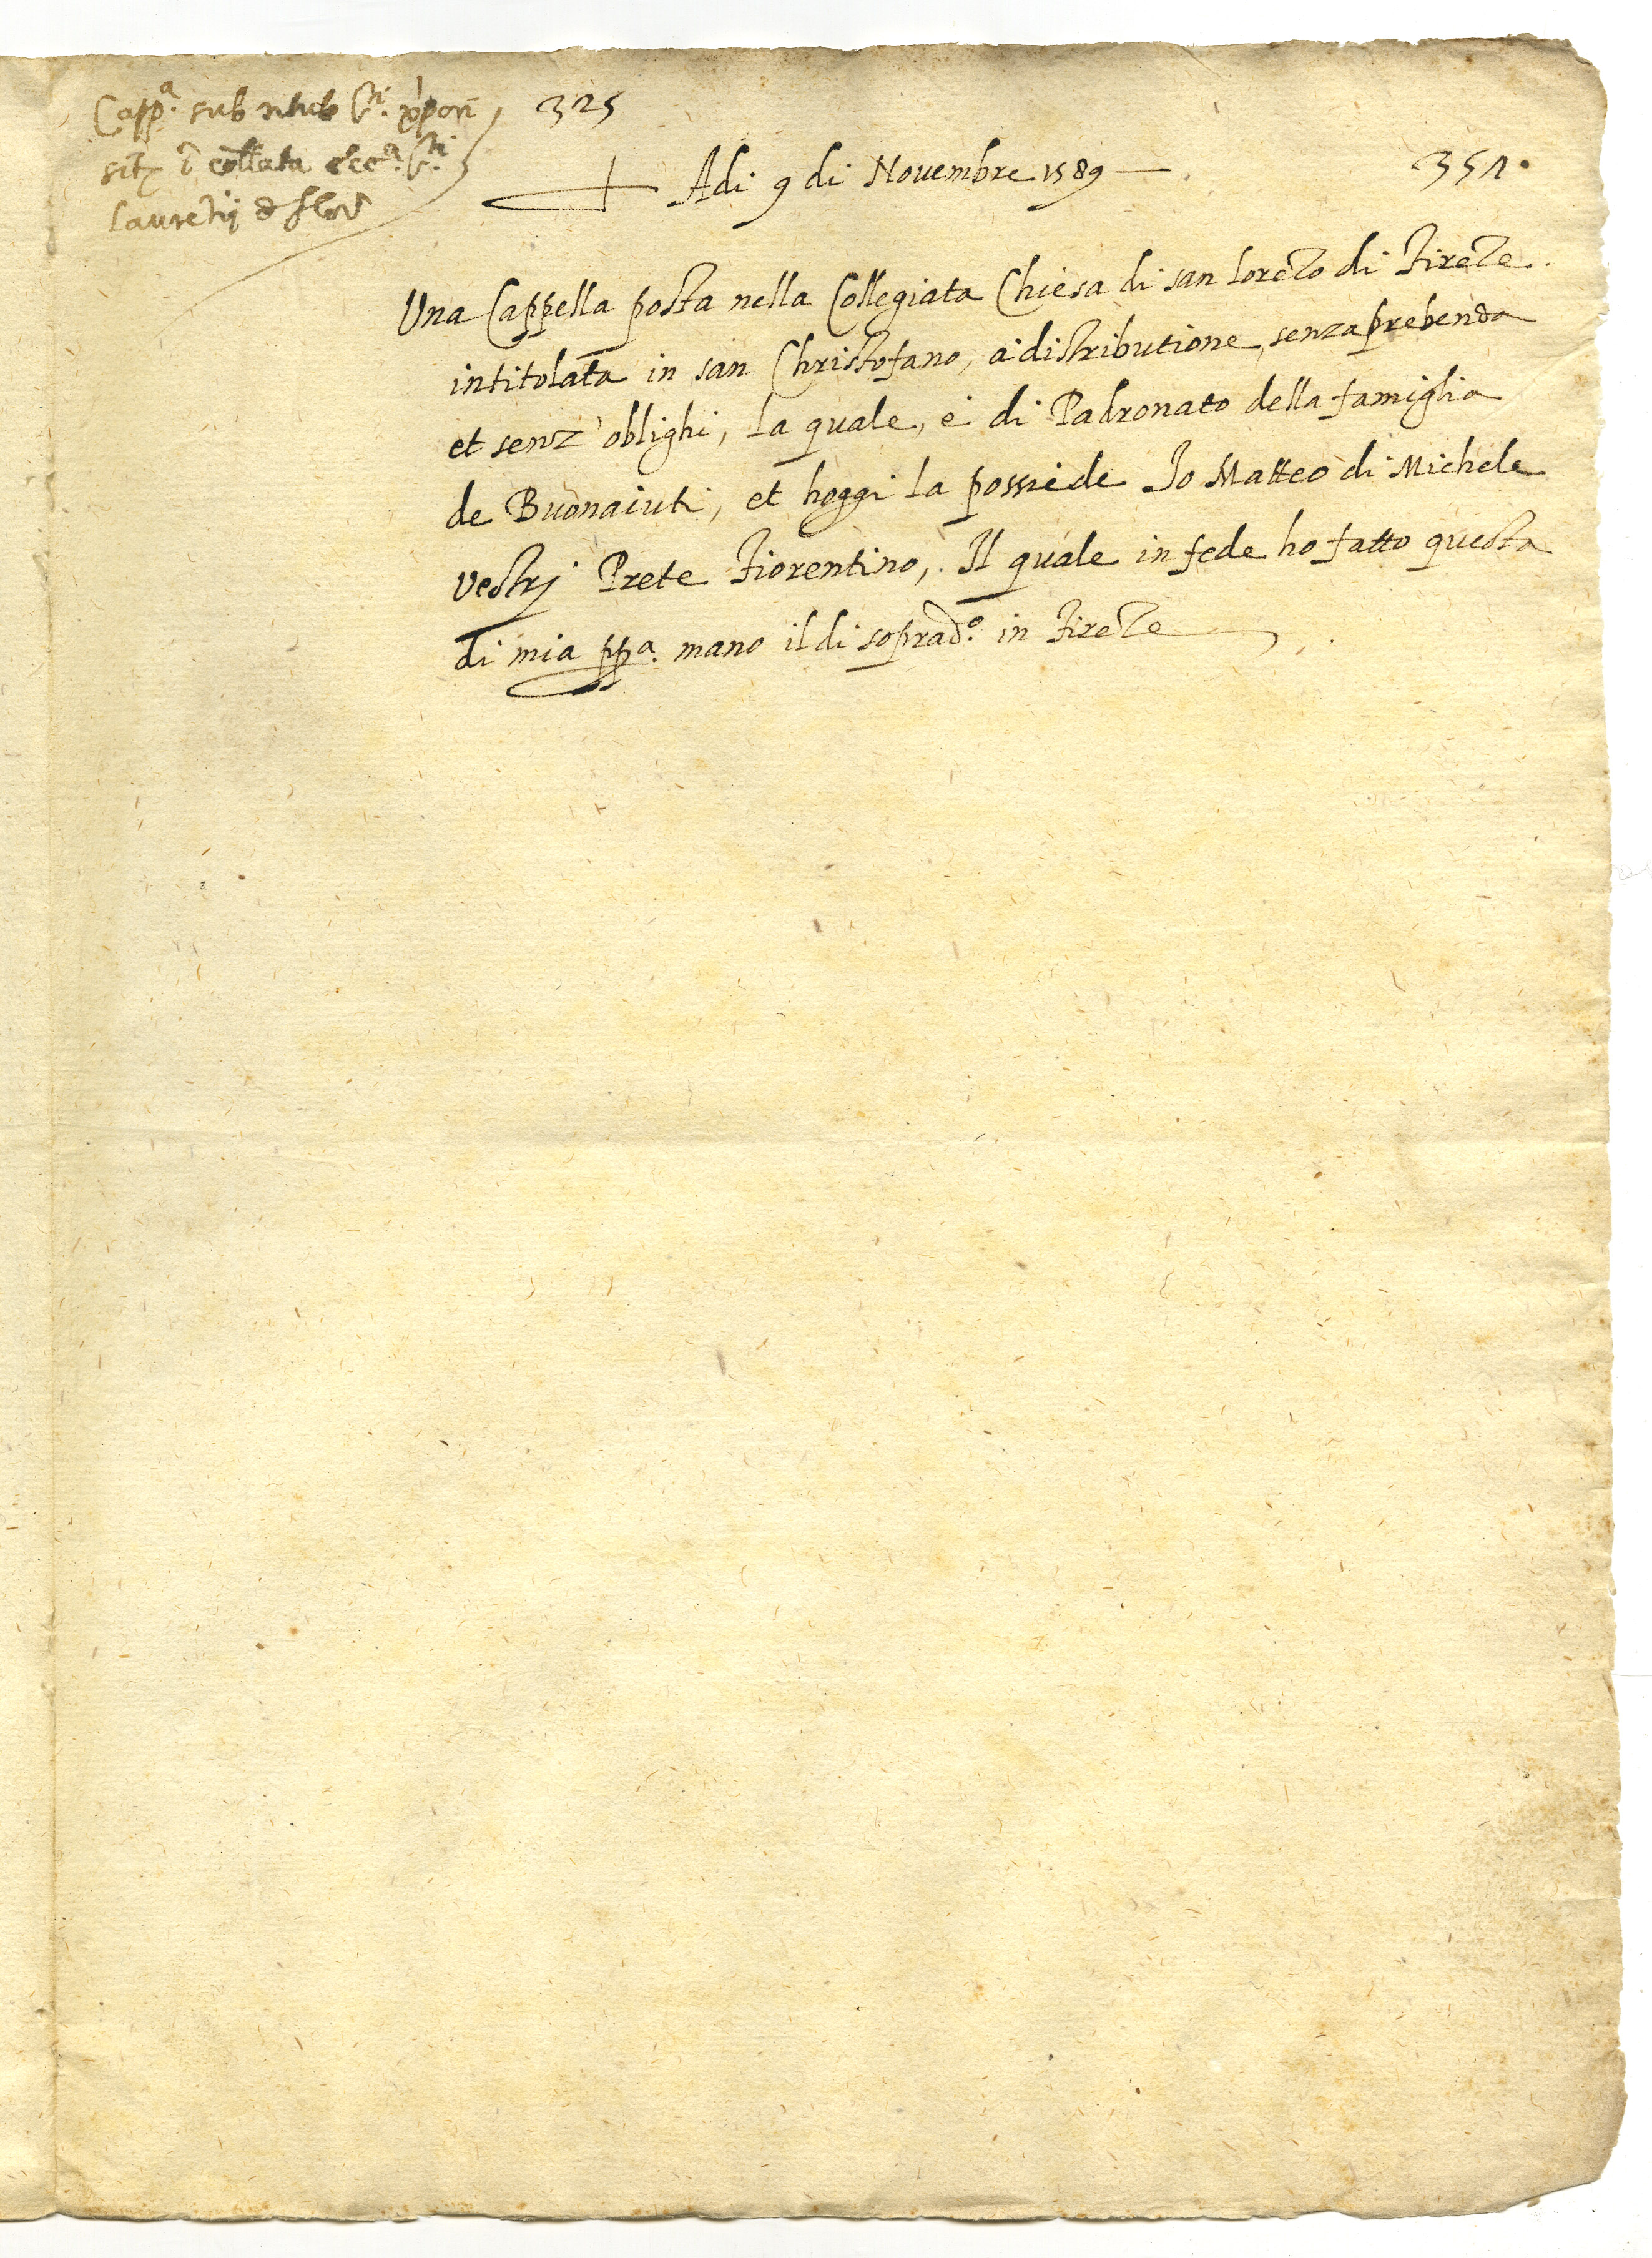 Capp.ª sub titulo S.ti xpofori 325
sit.ę ī collata ecc.ª S.ti
Laurētij d flor̄
Adi 9 di Nouembre 1589 351.
Una Cappella posta nella Collegiata Chiesa di san Lorēzo di Firēze.
intitolata in san Christofano, à distributione, senza prebenda
et senz'oblighi, la quale, è di Padronato della famiglia
de Buonaiuti, et hoggi la possiede Io Matteo di Michele
Vestrj Prete Fiorentino, Il quale in fede ho fatto questa
di mia ppª. mano il di soprad.º in Firēze